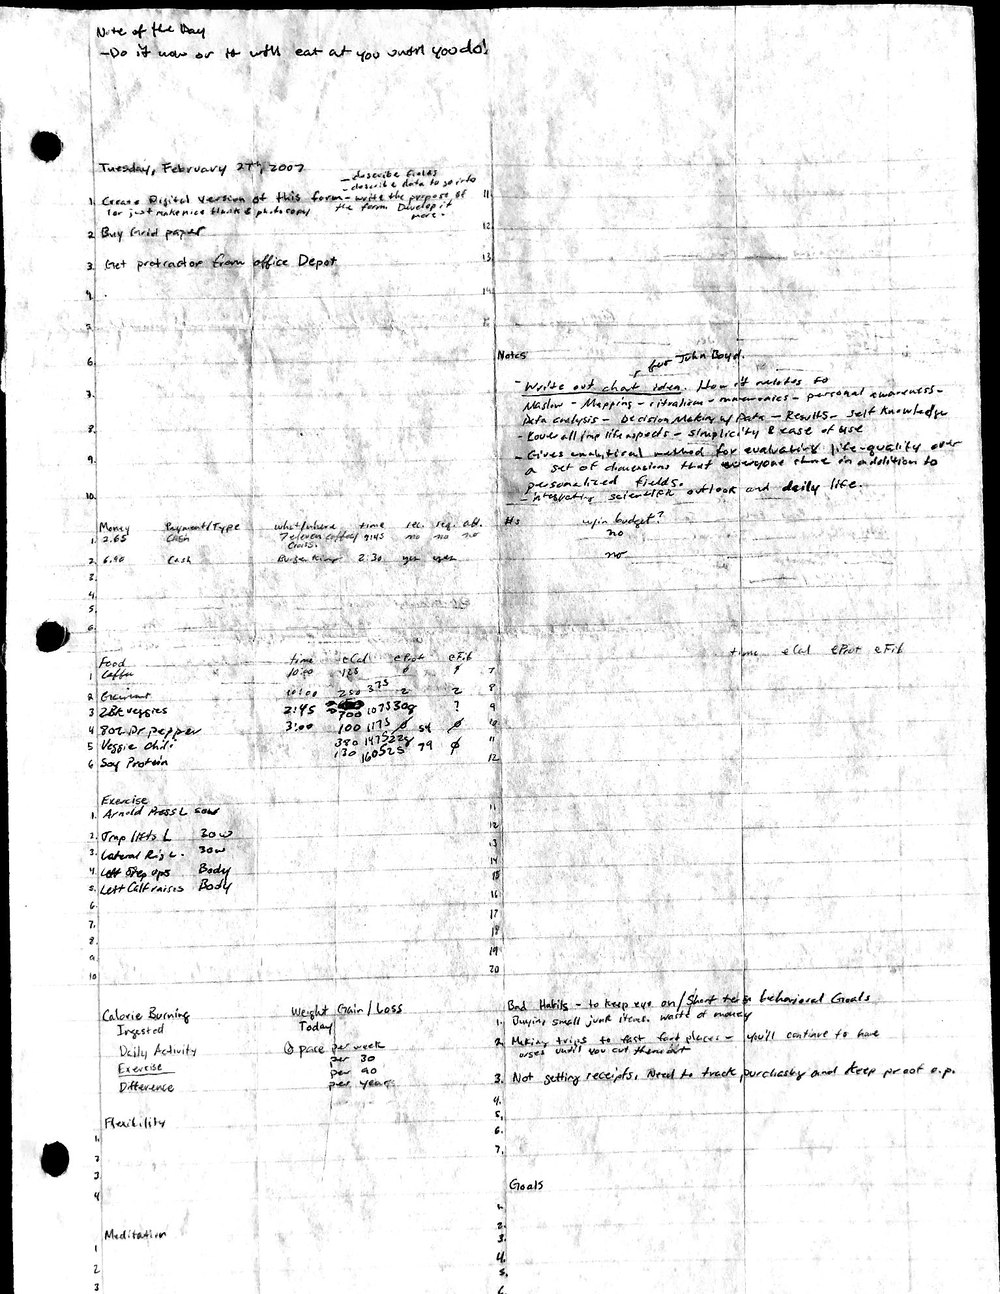 Note of the Day
-Do it now or it will eat at you until you do!
Tuesday, February 27th, 2007
- describe fields
- describe data to go into
1. Create Digital version of this form - write the purpose of
for just make nice blank & photocopy the form Develop it
more.
2. Buy Grid paper
3. Get protractor from office Depot
4.
5.
6.
7.
8.
9.
10.
11
12
13
14
15
Notes
for John Boyd.
- Write out chart idea. How it relates to
Maslow - Mapping - ritualism - mnemonics - personal awareness -
Data analysis - Decision Making w/ Data - Results - Self Knowledge
- Cover all imp life aspects - simplicity & ease of use
- Gives analytical method for evaluating life-quality over
a set of dimensions that everyone share in addition to
personalized fields.
- integrating scientific outlook and daily life.
Money Payment/Type what/where time rec. req. att. #s w/in budget?
1. 2.65 Cash 7 eleven coffee/ 9:45 no no no no
2. 6.90 Cash Burger King 2:30 yes yes no
3.
4.
5.
6.
Food time eCal eProt eFib
1 Coffee 10:00 125 0
2 10:00 250 375 2 2
3 2BK veggies 2:45 700 1075 30g ?
4 8oz Dr pepper 3:00 100 1175 Ø 54 Ø
5 Veggie Chili 380 1475 22g 79 Ø
6 Soy Protein 130 1605 25
time eCal eProt eFib
7
8
9
10
11
12
Exercise
1. Arnold Press L 50w
2. Trap lifts L 30w
3. Lateral Ris L. 30w
4. Left Step ups Body
5. Left Calf raises Body
6.
7.
8.
9
10
11
12
13
14
15
16
17
18
19
20
Calorie Burning
Ingested
Daily Activity
Exercise
Difference
Weight Gain/Loss
Today
@ pace per week
per 30
per 90
per year
Flexibility
1.
2
3
4
Meditation
1
2
3
Bad Habits - to keep eye on/Short term behavioral Goals
1. Buying small junk items. waste of money
2. Making trips to fast food places - you'll continue to have
urges until you cut them out
3. Not getting receipts. Need to track purchasing and keep proof o.p.
4.
5.
6.
7.
Goals
1.
2.
3.
4.
5.
6.